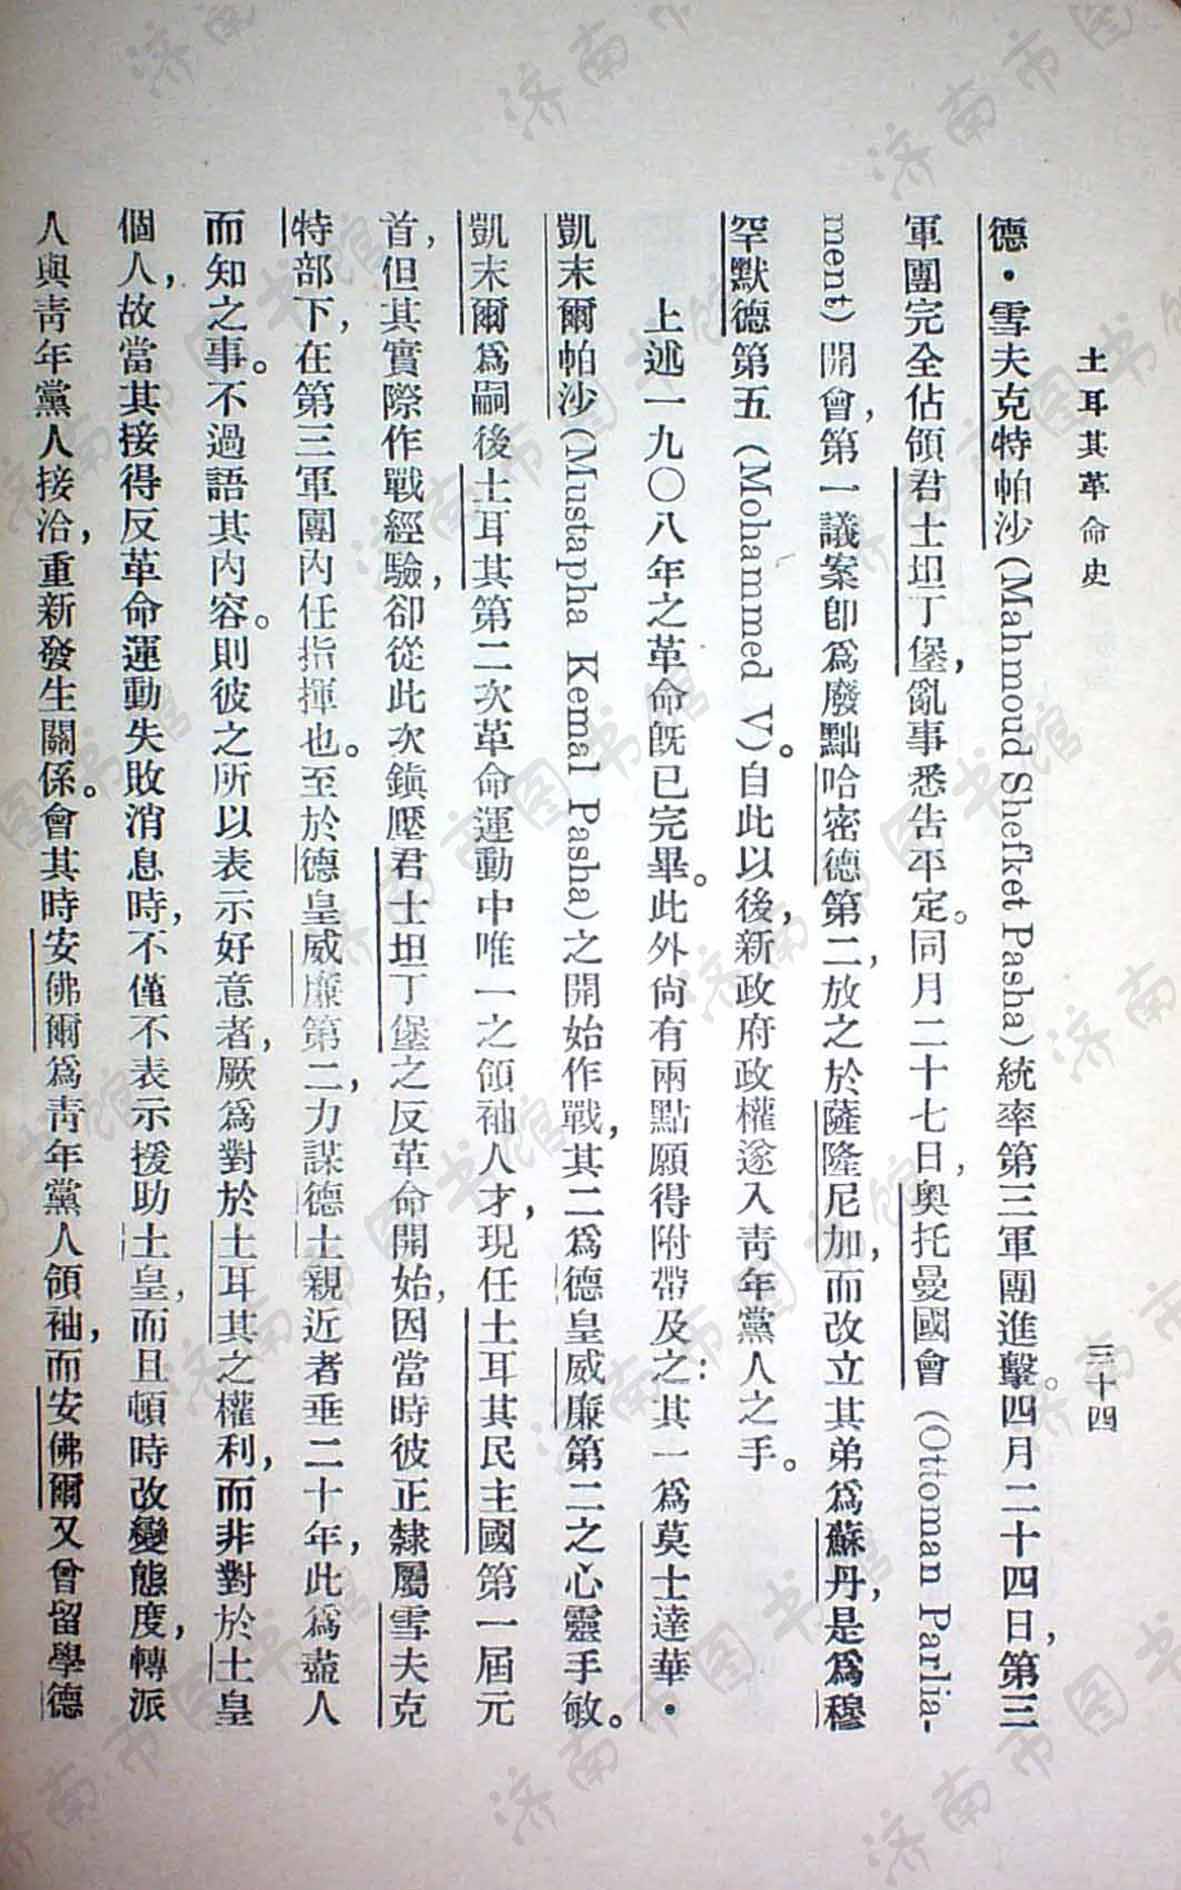 土耳其革命史 三十四
德·雪夫克特帕沙(Mahmoud Shefket Pasha)統率第三軍團進擊。四月二十四日，第三
軍團完全佔領君士坦丁堡，亂事悉告平定。同月二十七日，奧托曼國會(Ottoman Parlia-
ment)開會，第一議案卽爲廢黜哈密德第二，放之於薩隆尼加，而改立其弟爲蘇丹，是爲穆
罕默德第五(Mohammed V)。自此以後，新政府政權遂入靑年黨人之手。
上述一九〇八年之革命旣已完畢。此外尙有兩點願得附帶及之：其一爲莫士達華·
凱末爾帕沙(Mustapha Kemal Pasha)之開始作戰，其二爲德皇威廉第二之心靈手敏。
凱末爾爲嗣後土耳其第二次革命運動中唯一之領袖人才，現任土耳其民主國第一屆元
首，但其實際作戰經驗，卻從此次鎭壓君士坦丁堡之反革命開始，因當時彼正隸屬雪夫克
特部下，在第三軍團內任指揮也。至於德皇威廉第二，力謀德土親近者垂二十年，此爲盡人
而知之事。不過語其內容。則彼之所以表示好意者，厥爲對於土耳其之權利，而非對於土皇
個人，故當其接得反革命運動失敗消息時，不僅不表示援助土皇，而且頓時改變態度，轉派
人與靑年黨人接洽，重新發生關係。會其時安佛爾爲靑年黨人領袖，而安佛爾又曾留學德
济南市图书馆